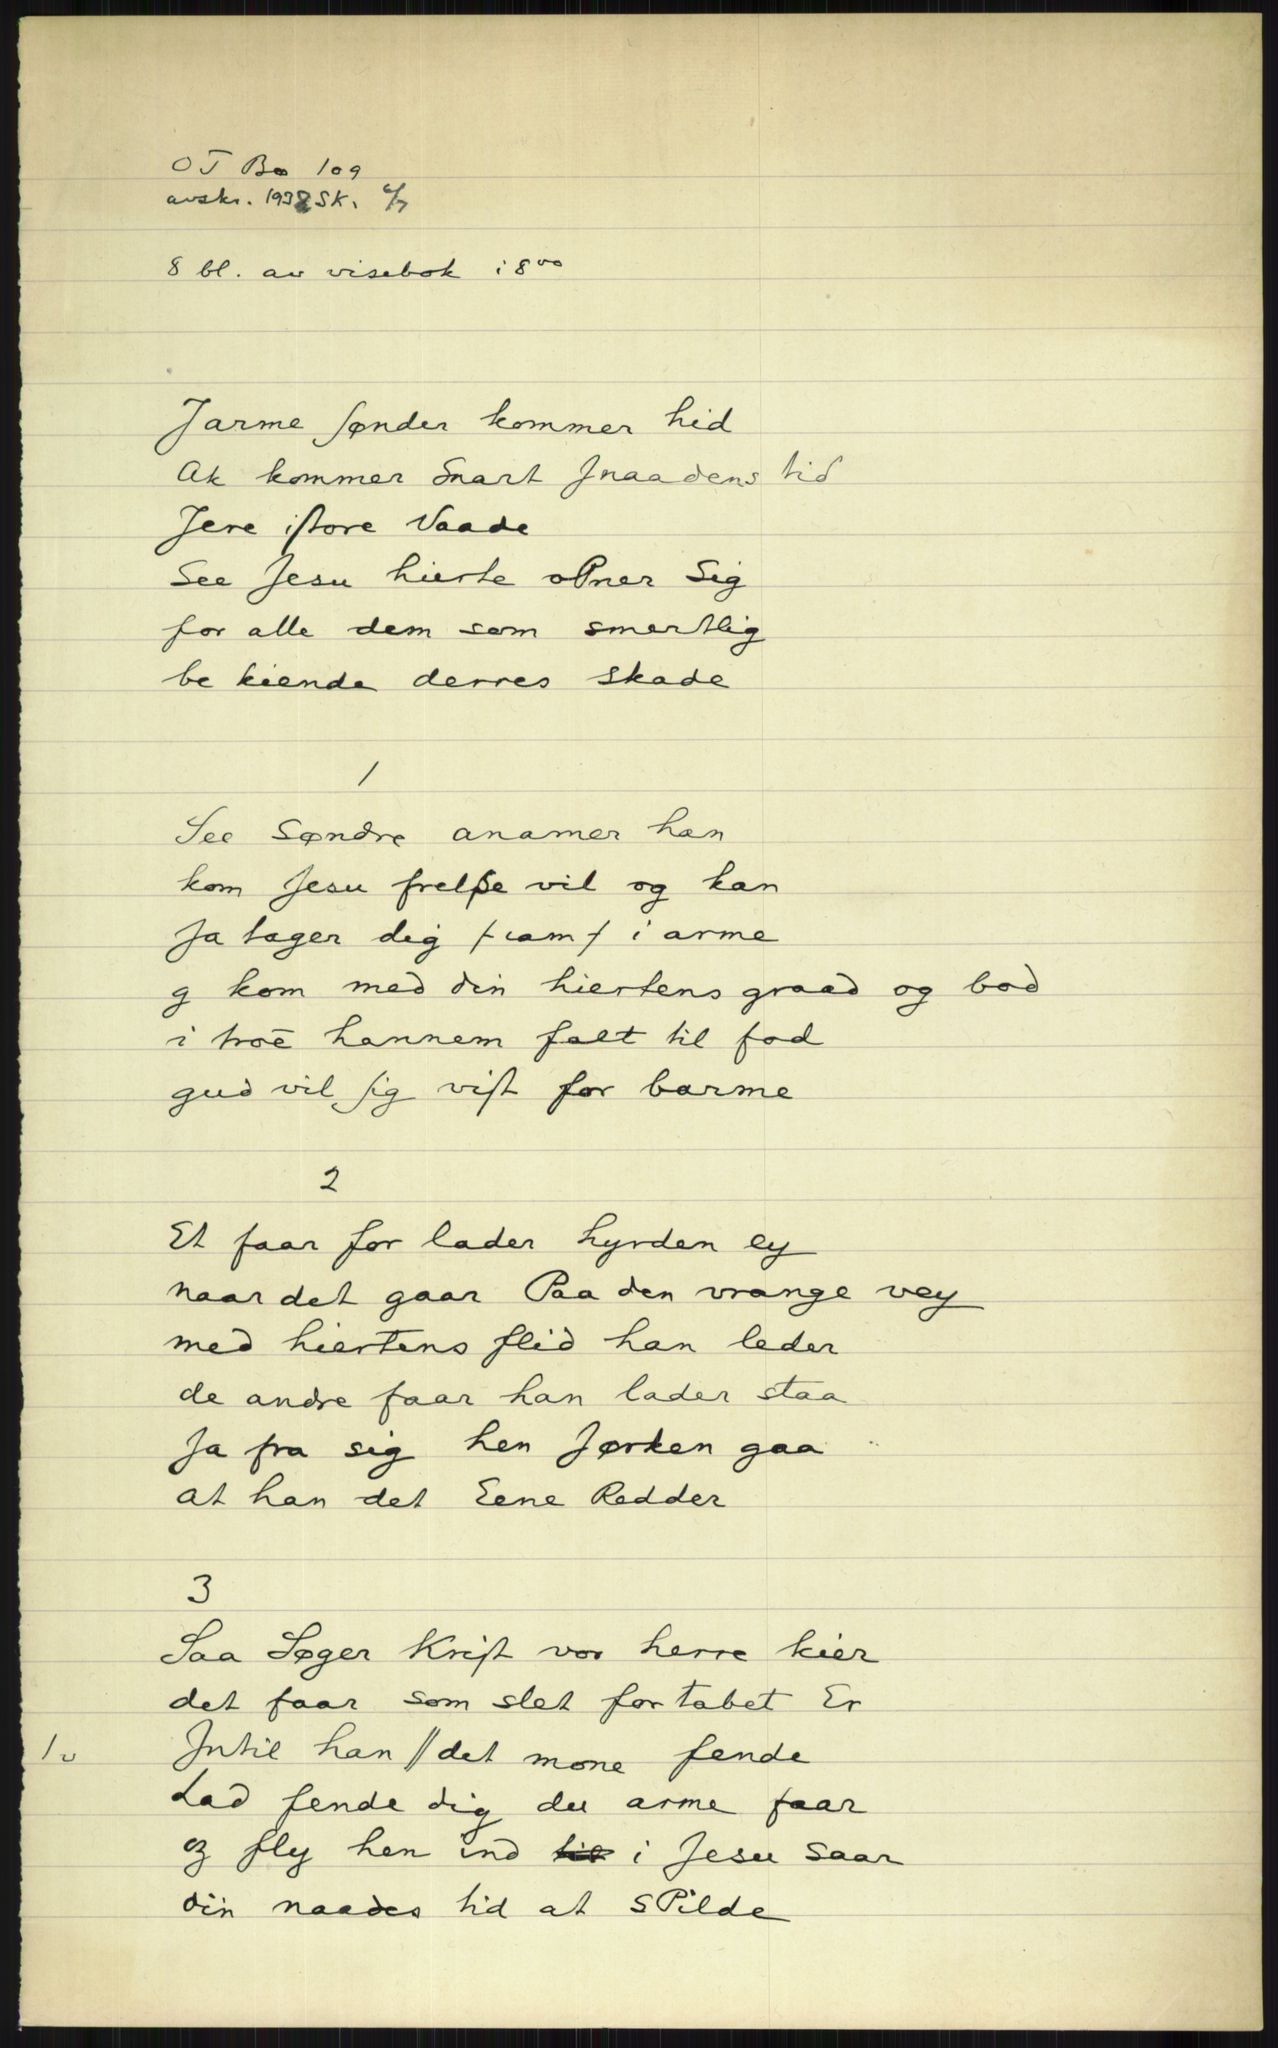 OT Bø 109
avskr. 1938 SK.
8 bl. av visebok i 8vo
Jarme ſønder kommer hid
Ak kommer Snart Jnaadens tid
Jere iſtore Vaade
See Jesu hierte oPner Sig
for alle dem som smertlig
be kiende derres skade
1
See Søndre anamer han
kom Jesu frelſe vil og kan
Ja tager dig i arme
g kom med din hiertens graad og bod
i troē hannem falt til fod
gud vil ſig viſt for barme
2
Et faar for lader hyrden ey
naar det gaar Paa den vrange vey
med hiertens flid han leder
de andre faar han lader staa
Ja fra sig hen Jørken gaa
at han det Eene Redder
3
Saa Søger Kriſt vor herre kier
det faar som slet for tabet Er
1v Jntil han // det mone fende
Lad fende dig du arme faar
og fly hen ind til i Jesu saar
din naades tid at sPilde